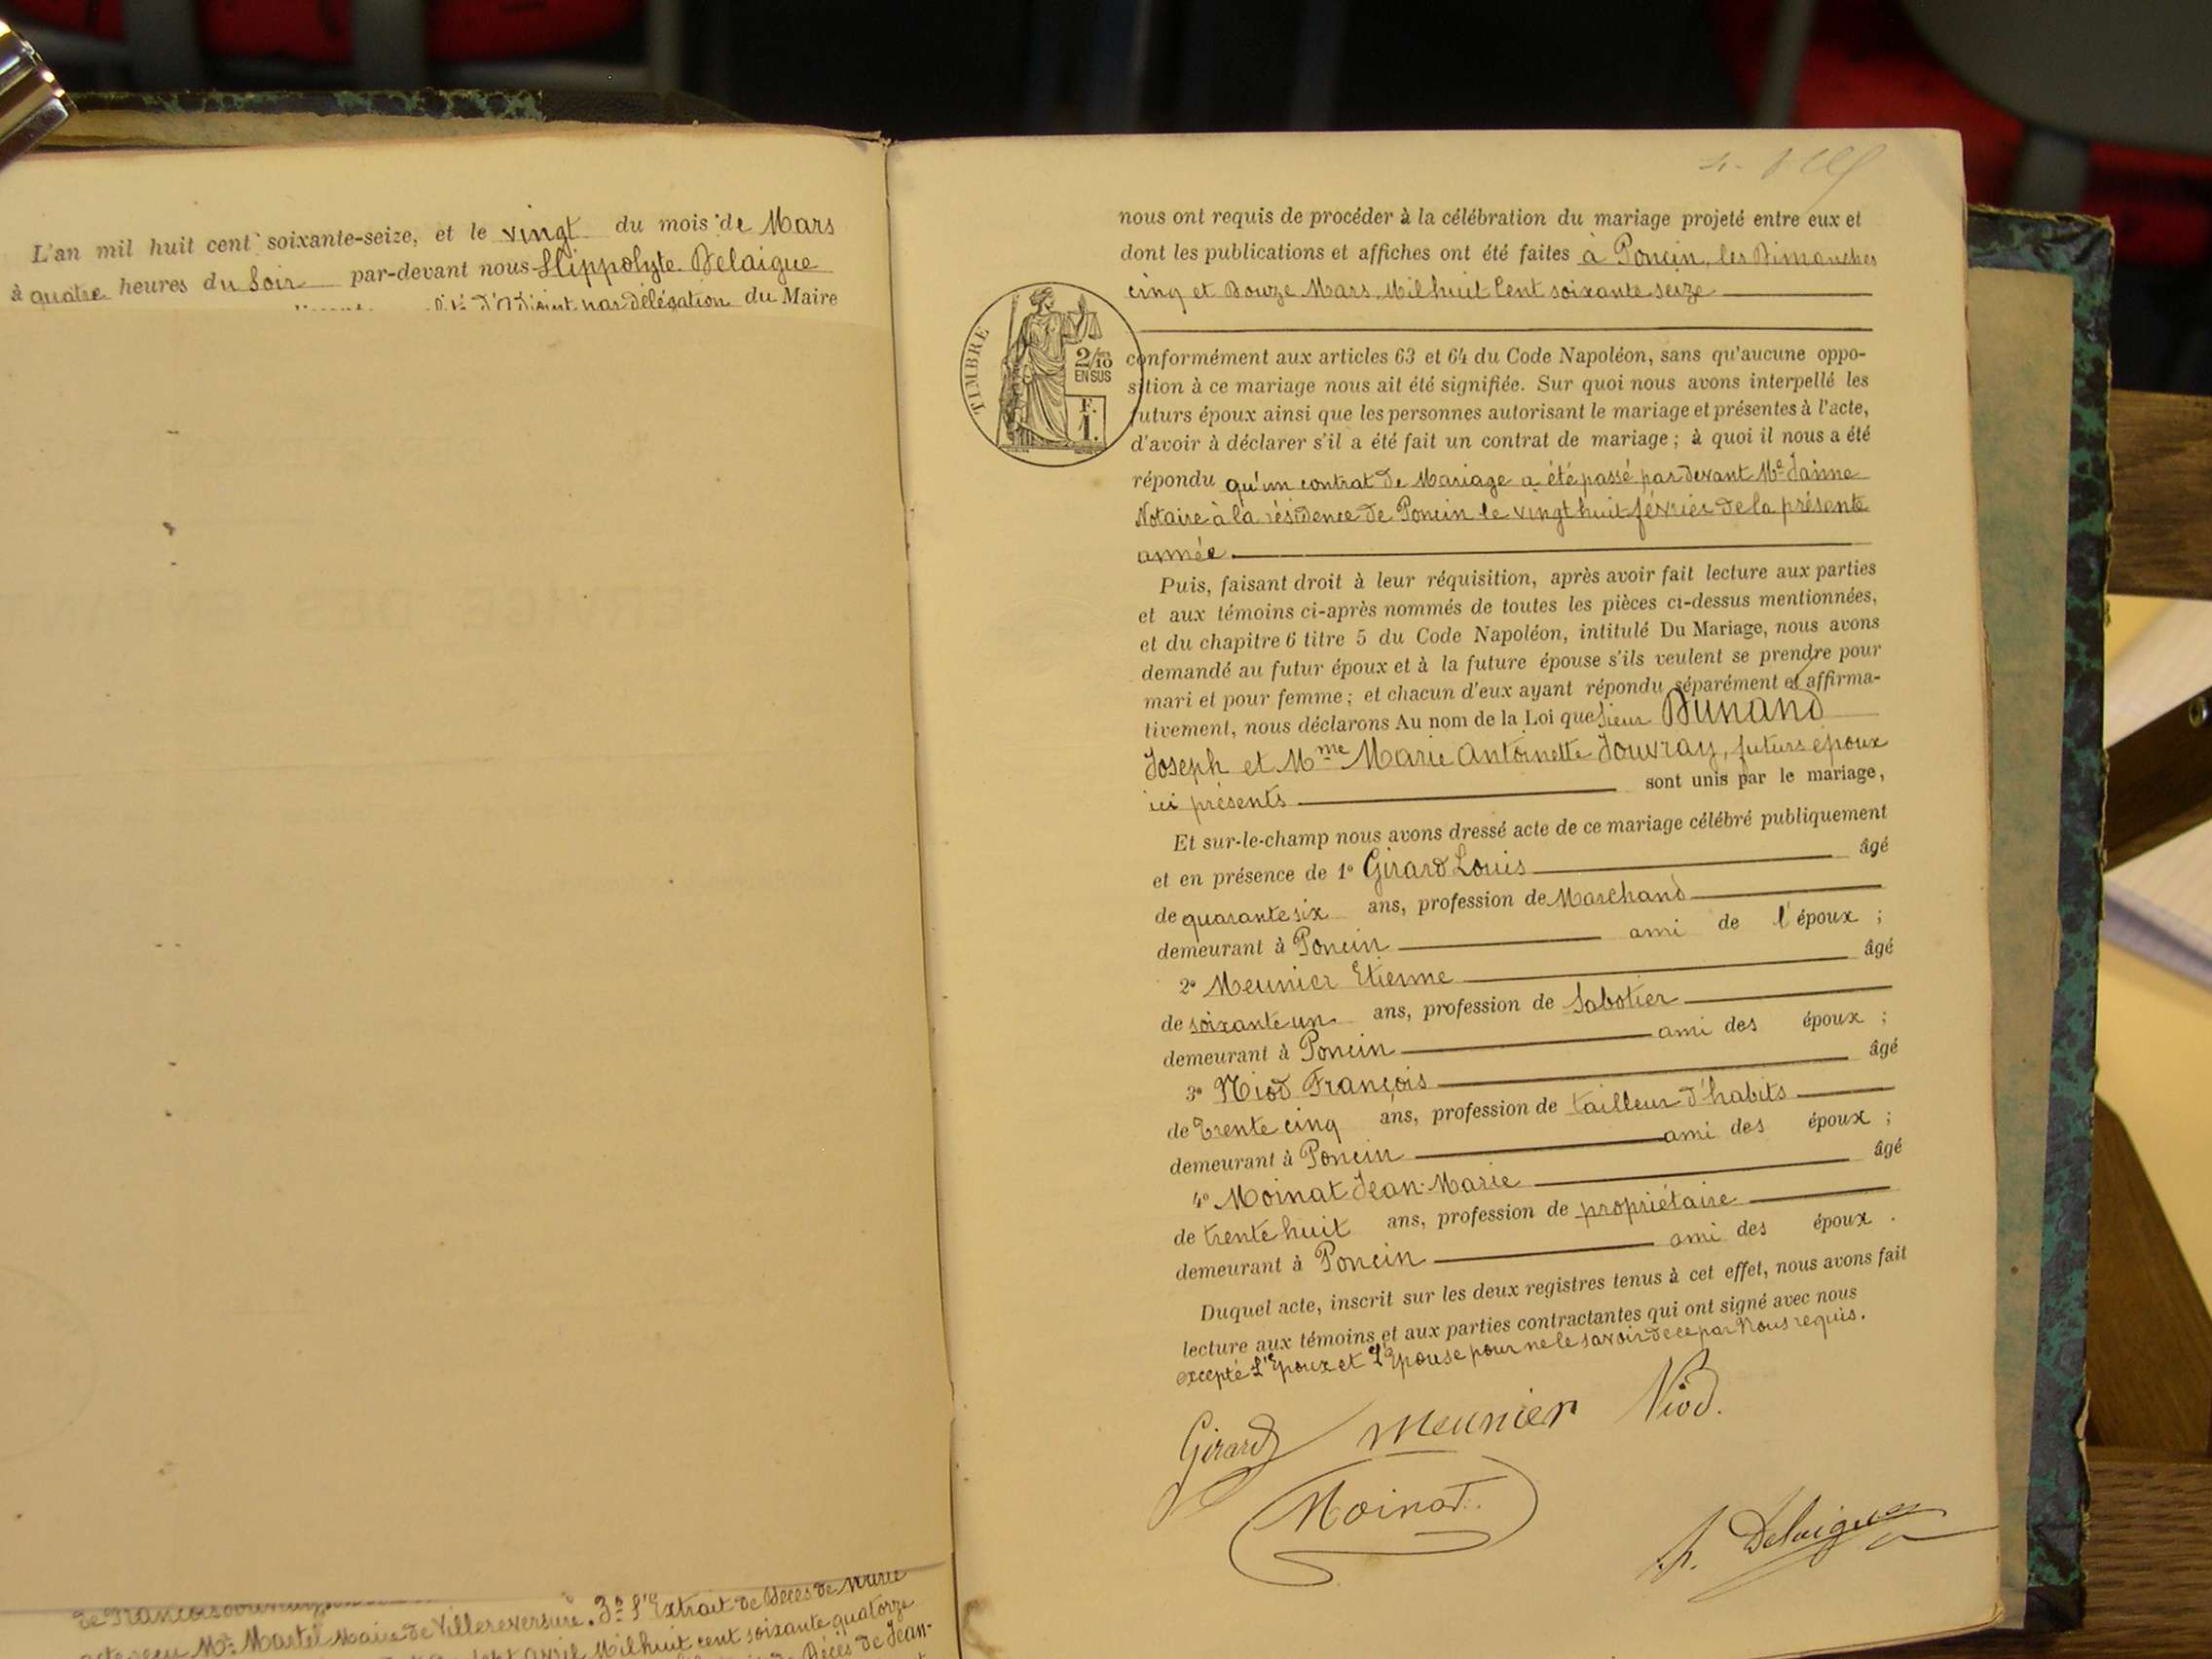 L'an mil huit cent soixante-seize, et le vingt du mois de Mars
à quatre heures du Soir par-devant nous Hippolyte Delaigue
d'Adjoint par délégation du Maire
3º L'Extrait de Décès de Marie
Mr Martel Maire de Villereversure.
avril Mil huit cent soixante quatorze
Décès de Jean-
nous ont requis de procéder à la célébration du mariage projeté entre eux et
dont les publications et affiches ont été faites à Poncin, les Dimanches
cinq et Douze Mars Mil huit Cent soixante seize
TIMBRE
2/10
EN SUS
F.
1.
conformément aux articles 63 et 64 du Code Napoléon, sans qu'aucune oppo-
sition à ce mariage nous ait été signifiée. Sur quoi nous avons interpellé les
futurs époux ainsi que les personnes autorisant le mariage et présentes à l'acte,
d'avoir à déclarer s'il a été fait un contrat de mariage ; à quoi il nous a été
répondu qu'un contrat de Mariage a été passé par devant Me Janne
Notaire à la résidence de Poncin le vingt huit février de la présente
année.
Puis, faisant droit à leur réquisition, après avoir fait lecture aux parties
et aux témoins ci-après nommés de toutes les pièces ci-dessus mentionnées,
et du chapitre 6 titre 5 du Code Napoléon, intitulé Du Mariage, nous avons
demandé au futur époux et à la future épouse s'ils veulent se prendre pour
mari et pour femme ; et chacun d'eux ayant répondu séparément et affirma-
tivement, nous déclarons Au nom de la Loi que Sieur Dunand
Joseph et Mme Marie Antoinette Jouvray, futurs époux
ici présents sont unis par le mariage,
Et sur-le-champ nous avons dressé acte de ce mariage célébré publiquement
et en présence de 1º Girard Louis âgé
de quarante six ans, profession de Marchand
demeurant à Poncin ami de l'époux ;
2º Meunier Etienne âgé
de soixante un ans, profession de Sabotier
demeurant à Poncin ami des époux ;
3º Niod François âgé
de Trente cinq ans, profession de tailleur d'habits
demeurant à Poncin ami des époux ;
4º Moinat Jean-Marie âgé
de trente huit ans, profession de propriétaire
demeurant à Poncin ami des époux.
Duquel acte, inscrit sur les deux registres tenus à cet effet, nous avons fait
lecture aux témoins et aux parties contractantes qui ont signé avec nous
excepté L'Epoux et L'Epouse pour ne le savoir de ce par Nous requis.
Girard Meunier Niod.
Moinat.
h. Delaigue